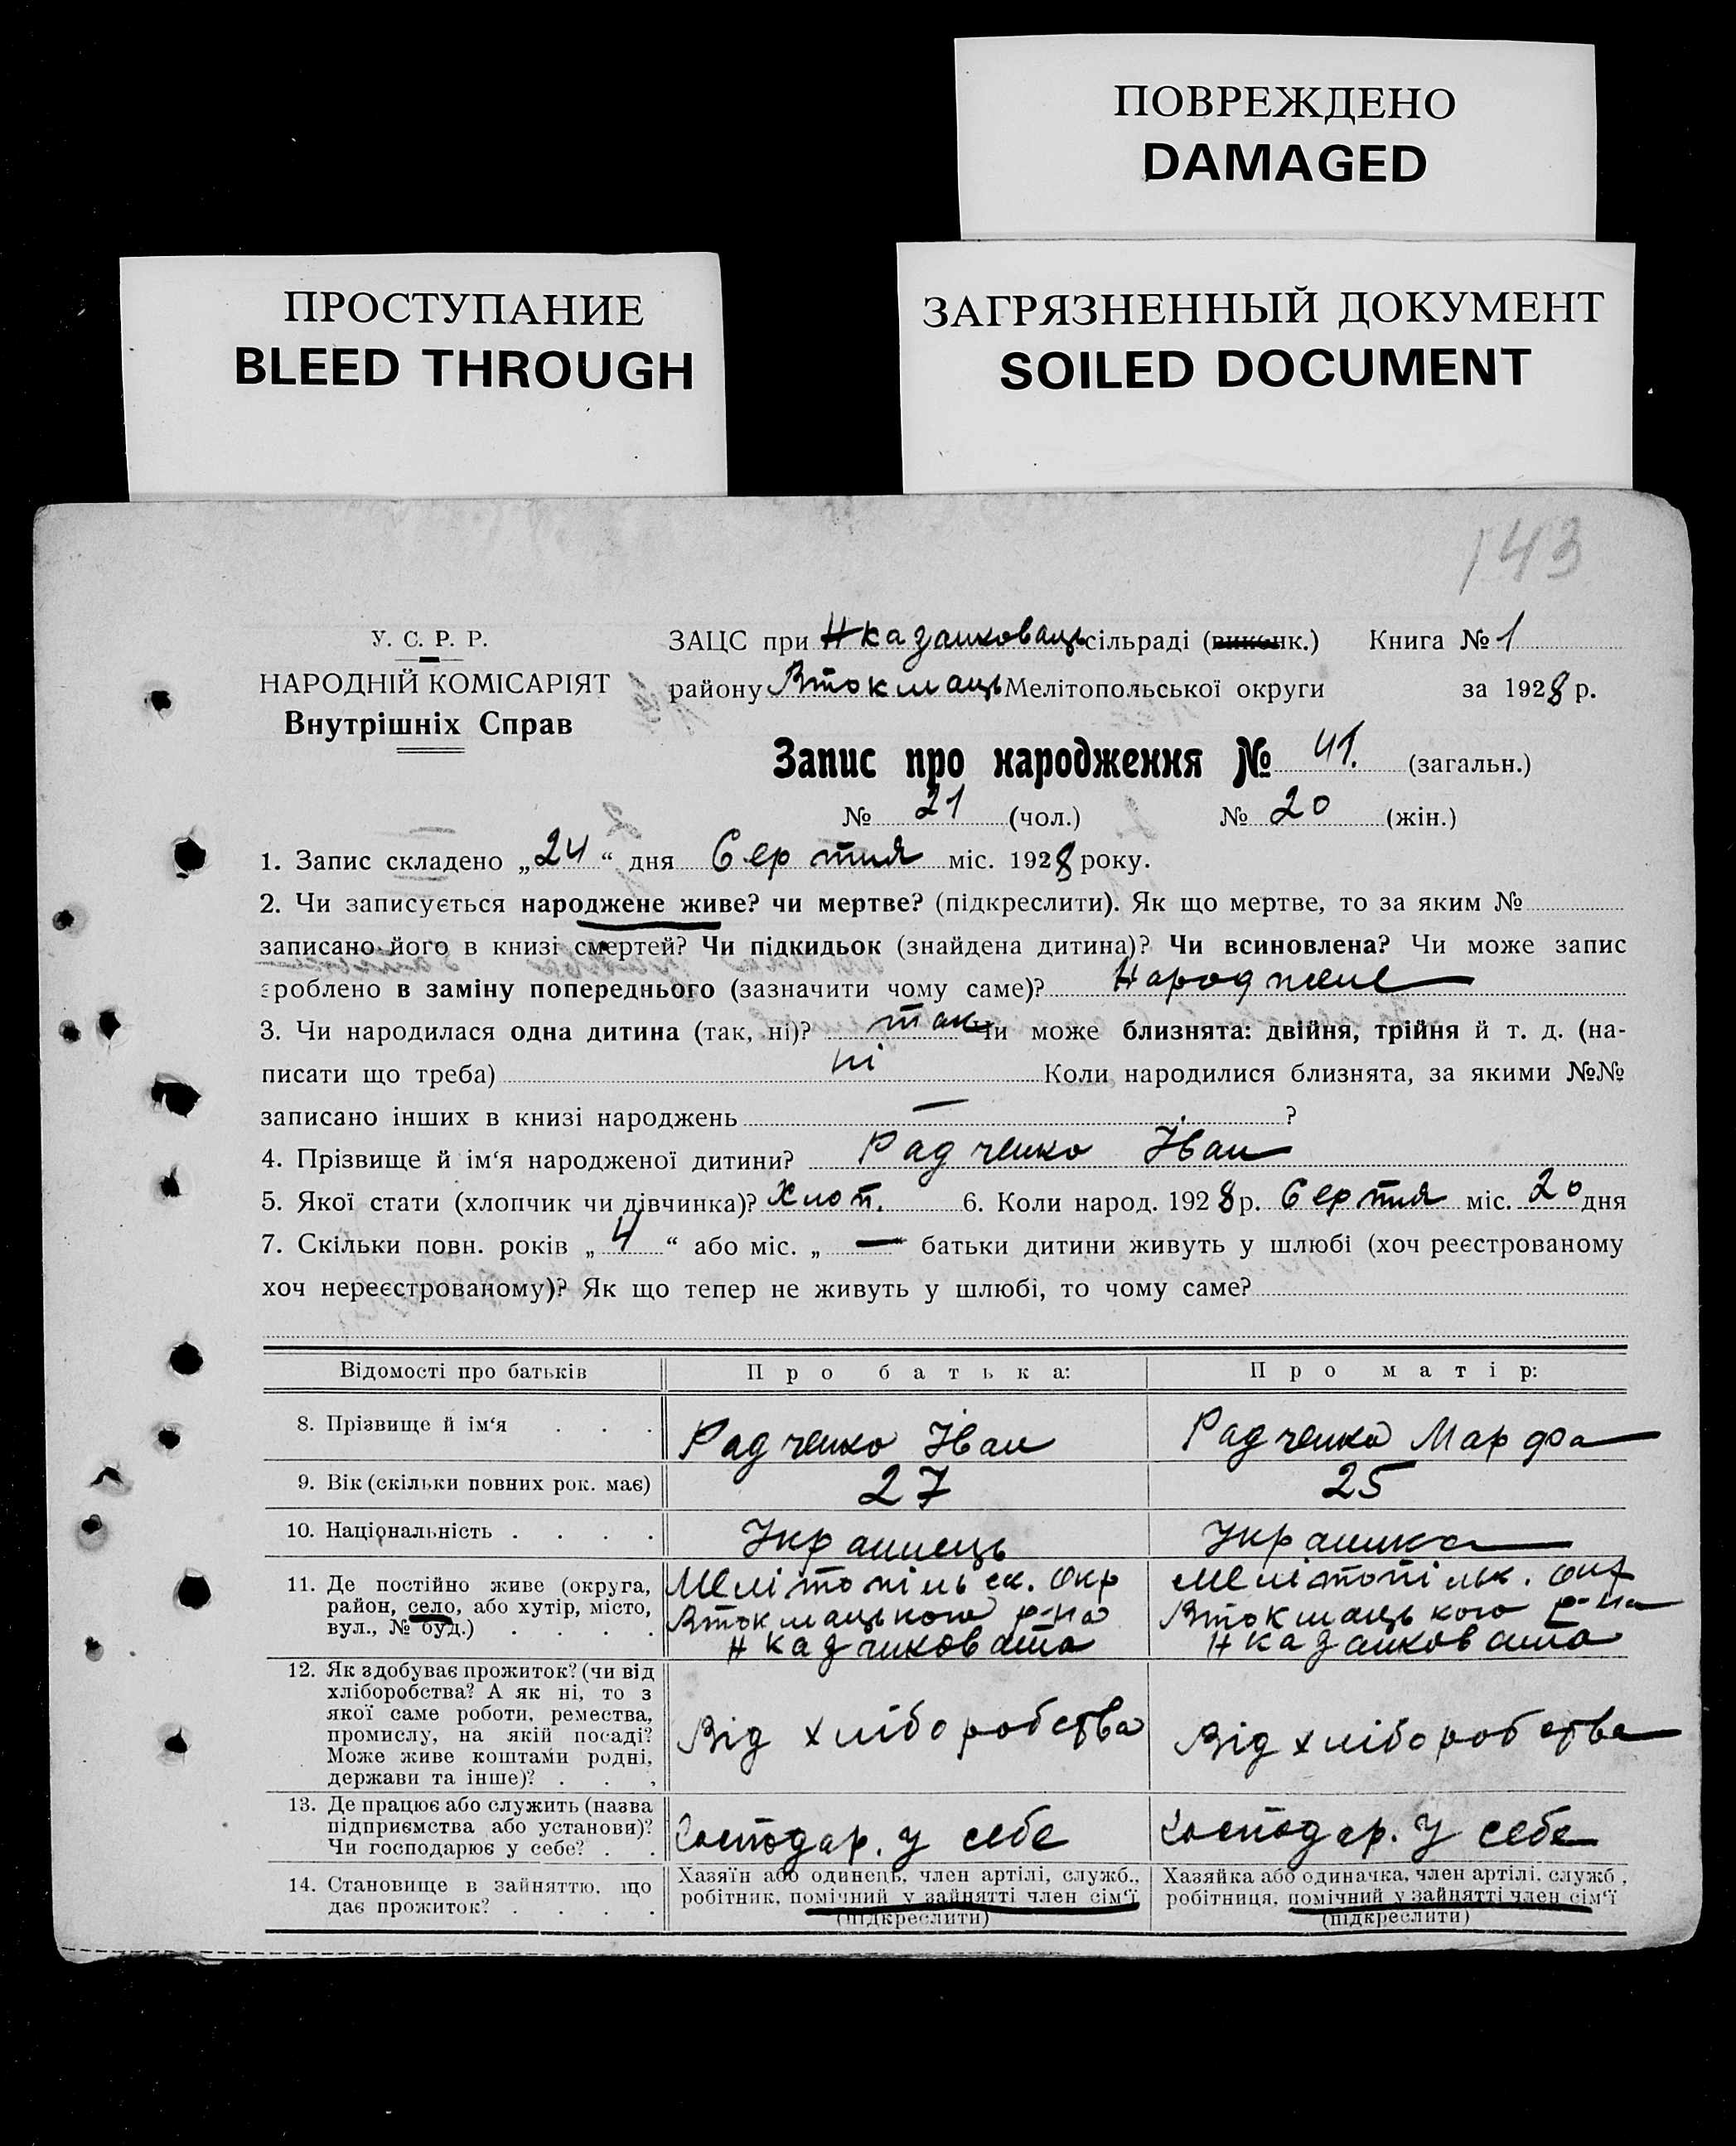 ПОВРЕЖДЕНО
DAMAGED
ПРОСТУПАНИЕ
BLEED THROUGH
ЗАГРЯЗНЕННЫЙ ДОКУМЕНТ
SOILED DOCUMENT
143
У. С. Р. Р.
НАРОДНІЙ КОМІСАРІЯТ
Внутрішніх Справ
ЗАЦС при Нказанковаць сільраді (виконк.) Книга № 1
району Втокмаць Мелітопольської округи за 1928 р.
Запис про народження № 41. (загальн.)
№ 21 (чол.) № 20 (жін.)
1. Запис складено „24“ дня Серптня міс. 1928 року.
2. Чи записується народжене живе? чи мертве? (підкреслити). Як що мертве, то за яким №
записано його в книзі смертей? Чи підкидьок (знайдена дитина)? Чи всиновлена? Чи може запис
зроблено в заміну попереднього (зазначити чому саме)? Народжене
3. Чи народилася одна дитина (так, ні)? так Чи може близнята: двійня, трійня й т. д. (на-
писати що треба) ні Коли народилися близнята, за якими №№
записано інших в книзі народжень — ?
4. Прізвище й ім‘я народженої дитини? Радченко Іван
5. Якої стати (хлопчик чи дівчинка)? Хлоп. 6. Коли народ. 1928 р. Серптня міс. 20 дня
7. Скільки повн. років „4“ або міс. „—“ батьки дитини живуть у шлюбі (хоч реєстрованому
хоч нереєстрованому)? Як що тепер не живуть у шлюбі, то чому саме?
Відомості про батьків Про батька: Про матір:
8. Прізвище й ім‘я . . . Радченко Іван Радченко Марфа
9. Вік (скільки повних рок. має) 27 25
10. Національність . . . . Українець Українка
11. Де постійно живе (округа,
район, село, або хутір, місто,
вул., № буд.) . . . .
Мелітопільск. Окр
Втокмацького р-на
Мелітопільк. Окр
Втокмацького р-на
Нказанковата
12. Як здобуває прожиток? (чи від
хліборобства? А як ні, то з
якої саме роботи, ремества,
промислу, на якій посаді?
Може живе коштами родні,
держави та інше)? . . .
Від хліборобства
Від хліборобства
13. Де працює або служить (назва
підприємства або установи)?
Чи господарює у себе? . .
Господар. у себе
Господар. у себе
14. Становище в зайняттю, що
дає прожиток? . . . .
Хазяїн або одинець, член артілі, служб.,
робітник, помічний у зайнятті член сім‘ї
(підкреслити)
Хазяйка або одиначка, член артілі, служб.,
робітниця, помічний у зайнятті член сім‘ї
(підкреслити)